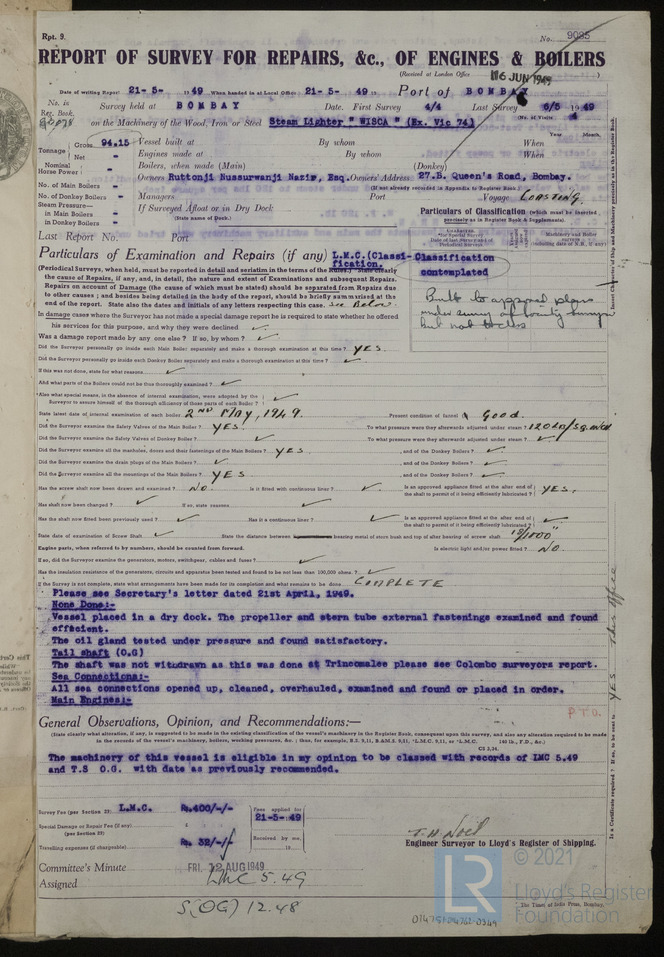 Rpt. 9.
No. 9035
REPORT OF SURVEY FOR REPAIRS, &c., OF ENGINES & BOILERS
(Received at London Office 16 JUN 1949 )
Date of writing Report 21-5- 1949 When handed in at Local Office 21-5- 49 19 Port of BOMBAY
No. in Survey held at BOMBAY Date. First Survey 4/4 Last Survey 6/5 1949
Reg. Book. (No. of Visits 4
on the Machinery of the Wood, Iron or Steel Steam Lighter "WISCA" (Ex. Vic 74)
Year. Month.
Tonnage Gross 94.15 Vessel built at By whom When
Net - Engines made at By whom When
Nominal Horse Power - Boilers, when made (Main) (Donkey)
Owners Ruttonji Nussurwanji Nazir, Esq. Owners' Address 27.B. Queen's Road, Bombay.
(If not already recorded in Appendix to Register Book.)
No. of Main Boilers - Managers Port Voyage COASTING.
No. of Donkey Boilers -
Steam Pressure—
in Main Boilers -
in Donkey Boilers -
If Surveyed Afloat or in Dry Dock
(State name of Dock.)
Particulars of Classification (which must be inserted
precisely as in Register Book & Supplements).
Last Report No. Port
Particulars of Examination and Repairs (if any) L.M.C.(Classi-
fication.
Classification
contemplated
(Periodical Surveys, when held, must be reported in detail and seriatim in the terms of the Rules. State clearly
the cause of Repairs, if any, and, in detail, the nature and extent of Examinations and subsequent Repairs.
Repairs on account of Damage (the cause of which must be stated) should be separated from Repairs due
to other causes; and besides being detailed in the body of the report, should be briefly summarised at the
end of the report. State also the dates and initials of any letters respecting this case. See Below.
Built to approved plans
under survey of Society surveyors
but not to class
In damage cases where the Surveyor has not made a special damage report he is required to state whether he offered
his services for this purpose, and why they were declined
Was a damage report made by any one else? If so, by whom?
Did the Surveyor personally go inside each Main Boiler separately and make a thorough examination at this time? YES.
Did the Surveyor personally go inside each Donkey Boiler separately and make a thorough examination at this time?
If this was not done, state for what reasons
And what parts of the Boilers could not be thoroughly examined?
Also what special means, in the absence of internal examination, were adopted by the
Surveyor to assure himself of the thorough efficiency of those parts of each Boiler?
State latest date of internal examination of each boiler 2ND May, 1949. Present condition of funnel Good.
Did the Surveyor examine the Safety Valves of the Main Boiler? YES. To what pressure were they afterwards adjusted under steam? 120 lb/sq.inch
Did the Surveyor examine the Safety Valves of Donkey Boiler? To what pressure were they afterwards adjusted under steam?
Did the Surveyor examine all the manholes, doors and their fastenings of the Main Boilers? YES. , and of the Donkey Boilers?
Did the Surveyor examine the drain plugs of the Main Boilers? , and of the Donkey Boilers?
Did the Surveyor examine all the mountings of the Main Boilers? YES , and of the Donkey Boilers?
Has the screw shaft now been drawn and examined? NO. Is it fitted with continuous liner? Is an approved appliance fitted at the after end of
the shaft to permit of it being efficiently lubricated? YES.
Has shaft now been changed? If so, state reasons
Has the shaft now fitted been previously used? Has it a continuous liner? Is an approved appliance fitted at the after end of
the shaft to permit of it being efficiently lubricated?
State date of examination of Screw Shaft State the distance between bearing metal of stern bush and top of after bearing of screw shaft 18/1000"
Engine parts, when referred to by numbers, should be counted from forward. Is electric light and/or power fitted? NO.
If so, did the Surveyor examine the generators, motors, switchgear, cables and fuses?
Has the insulation resistance of the generators, circuits and apparatus been tested and found to be not less than 100,000 ohms?
If the Survey is not complete, state what arrangements have been made for its completion and what remains to be done COMPLETE
Please see Secretary's letter dated 21st April, 1949.
Now Done:-
Vessel placed in a dry dock. The propeller and stern tube external fastenings examined and found
efficient.
The oil gland tested under pressure and found satisfactory.
Tail shaft (O.G)
The shaft was not withdrawn as this was done at Trincomalee please see Colombo surveyors report.
Sea Connections:-
All sea connections opened up, cleaned, overhauled, examined and found or placed in order.
Main Engines:-
P.T.O.
General Observations, Opinion, and Recommendations:—
(State clearly what alteration, if any, is suggested to be made in the existing classification of the vessel's machinery in the Register Book, consequent upon this survey, and also any alteration required to be made
in the records of the vessel's machinery, boilers, working pressures, &c.; thus, for example, B.S. 9,11, B.&M.S. 9,11, *L.M.C. 9,11, or *L.M.C. 140 lb., F.D., &c.)
CS 2,34.
The machinery of this vessel is eligible in my opinion to be classed with records of LMC 5.49
and T.S O.G. with date as previously recommended.
Survey Fee (per Section 23) L.M.C. Rs.400/-/- Fees applied for
21-5-49
Special Damage or Repair Fee (if any)
(per Section 23)
Travelling expenses (if chargeable) Rs. 32/-/- Received by me,
19
T. H. Noel
Engineer Surveyor to Lloyd's Register of Shipping.
Committee's Minute FRI. 12 AUG 1949
Assigned LMC 5.49
S(OG) 12.48
© 2021
LR
Lloyd's Register
Foundation
The Times of India Press, Bombay.
Is a Certificate required? If so, to be sent to YES This office